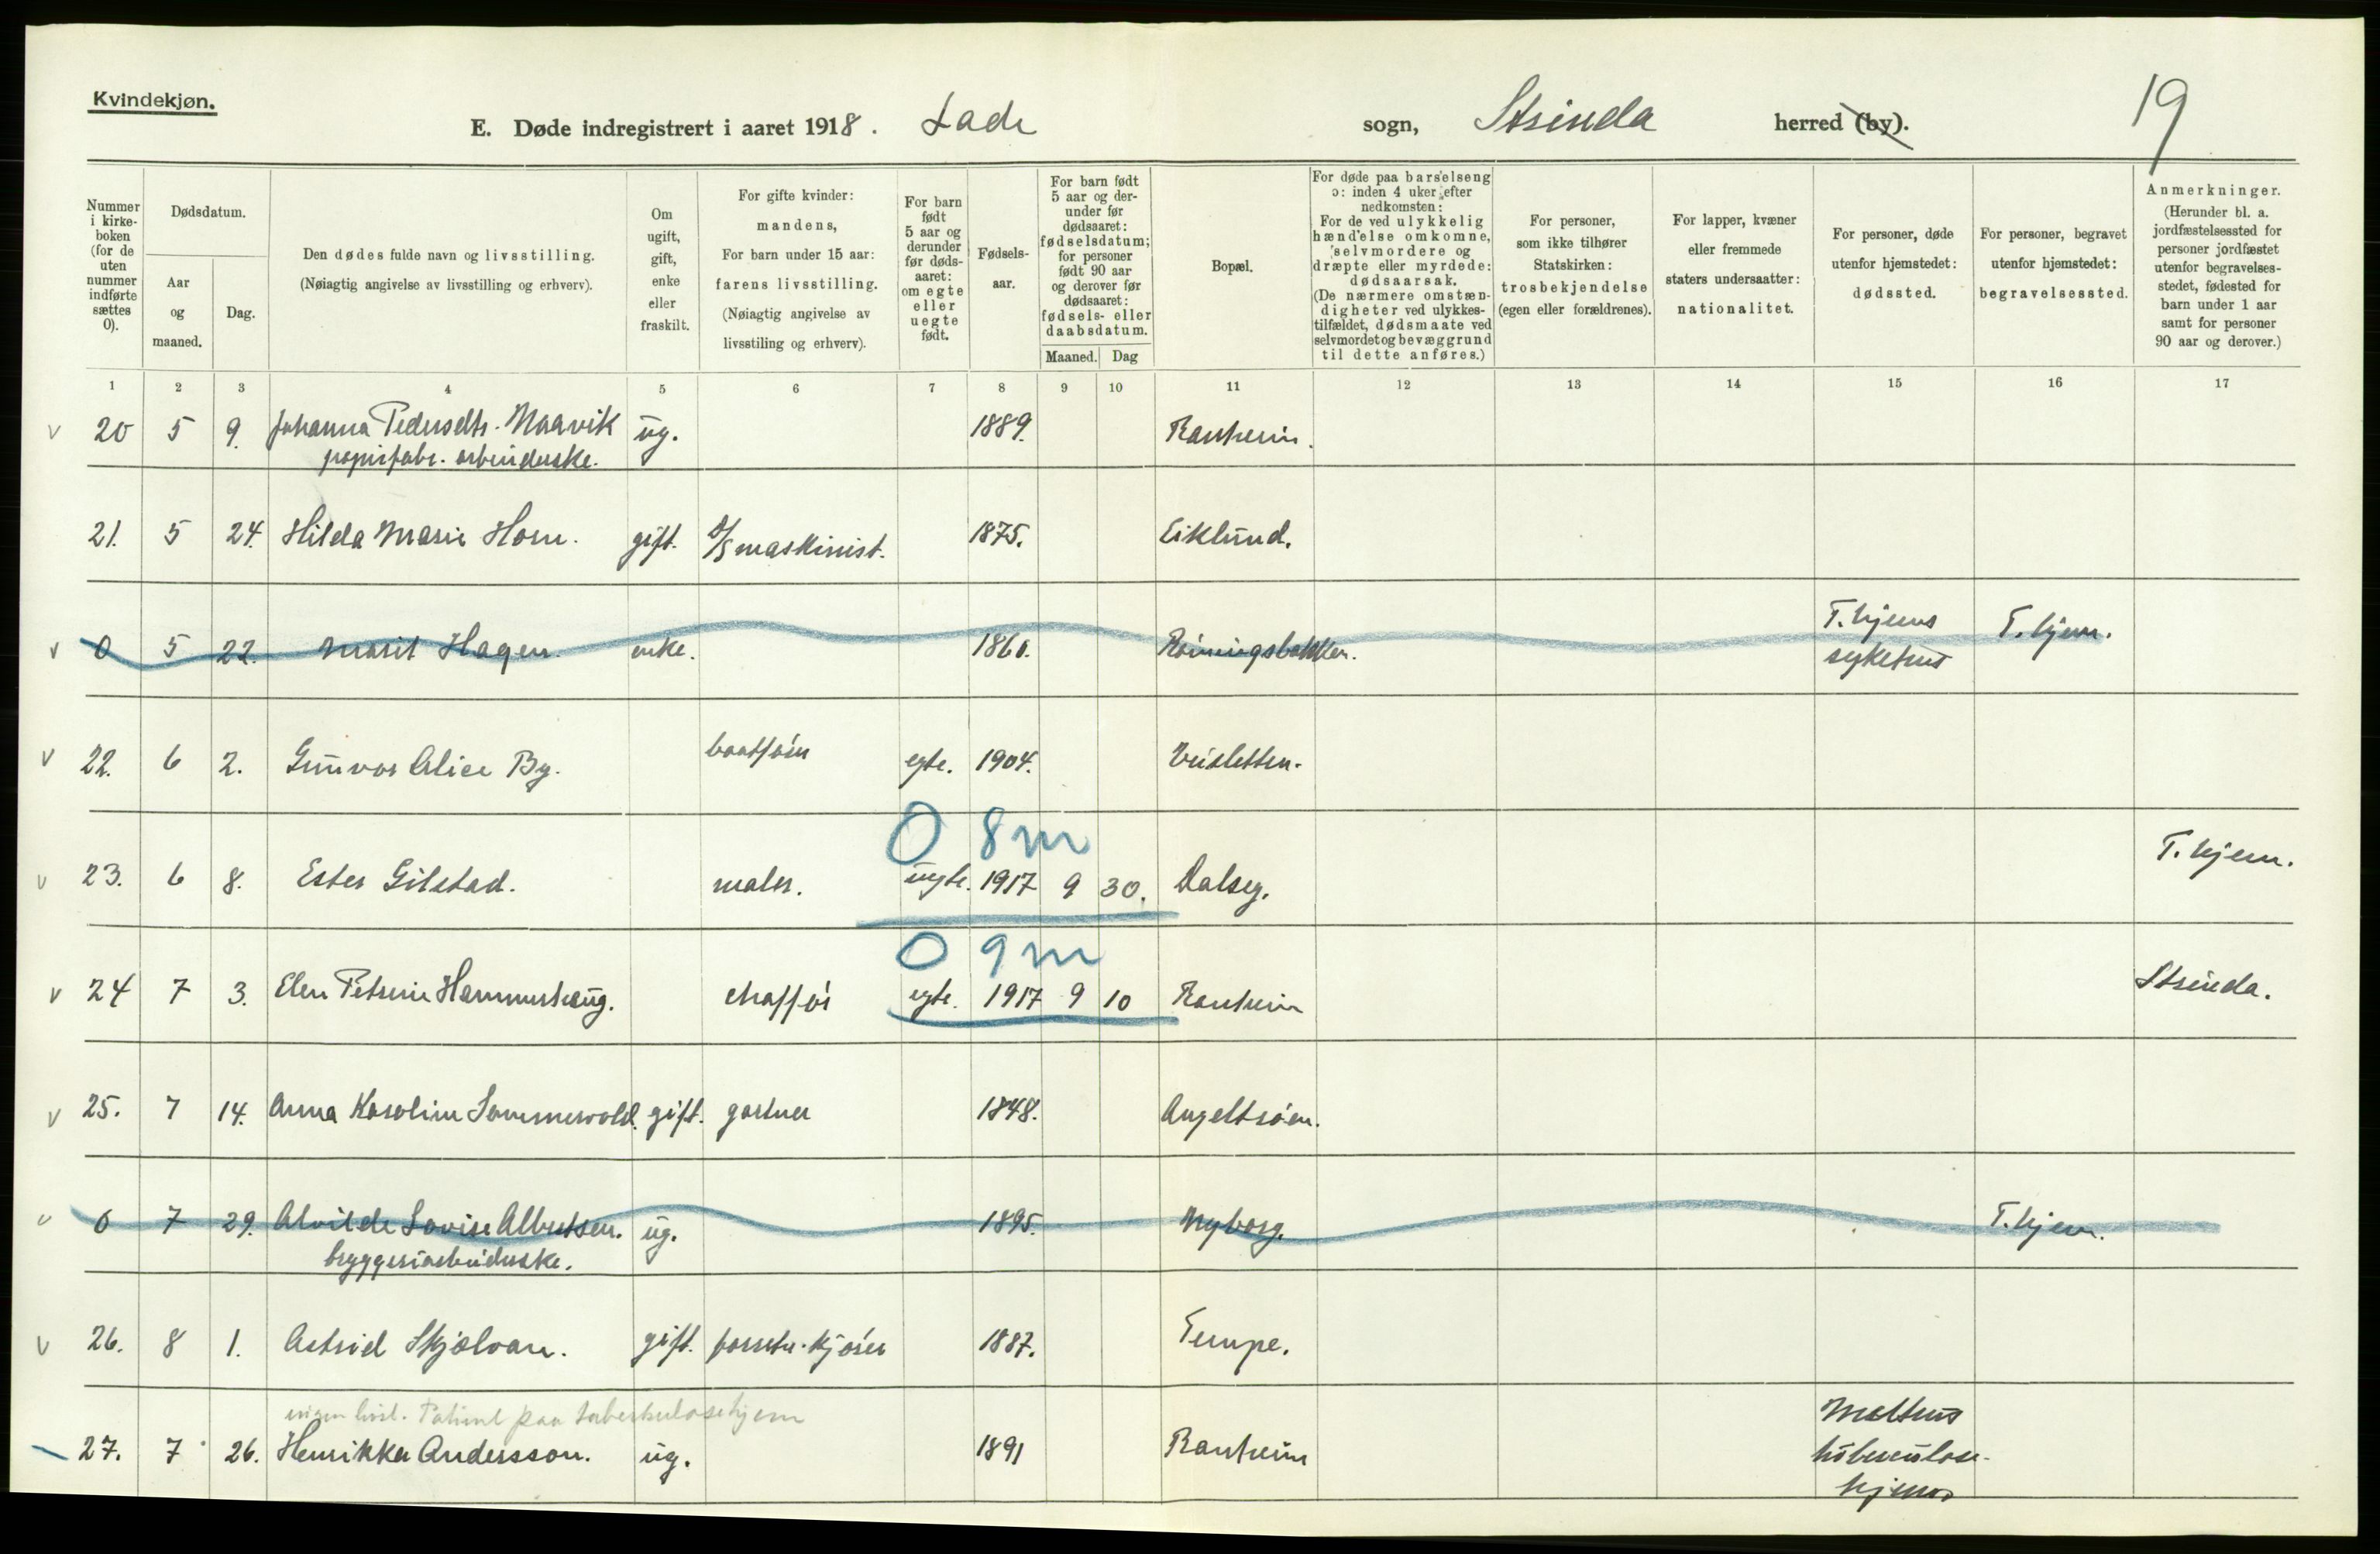 Kvindekjøn.
E. Døde indregistrert i aaret 1918. Lade sogn, Strinda herred (by). 19
Nummer i kirke-boken (for de uten nummer indførte sættes 0).
Dødsdatum.
Aar og maaned.
Dag.
Den dødes fulde navn og livsstilling.
(Nøiagtig angivelse av livsstilling og erhverv).
Om ugift, gift, enke eller fraskilt.
For gifte kvinder: mandens,
For barn under 15 aar: farens livsstilling.
(Nøiagtig angivelse av livsstiling og erhverv).
For barn født 5 aar og derunder før døds-aaret: om egte eller uegte født.
Fødsels-aar.
For barn født 5 aar og der-under før dødsaaret: fødselsdatum; for personer født 90 aar og derover før dødsaaret: fødsels- eller daabsdatum.
Maaned. Dag
Bopæl.
For døde paa barselseng ɔ: inden 4 uker efter nedkomsten:
For de ved ulykkelig hændelse omkomne, selvmordere og dræpte eller myrdede: dødsaarsak.
(De nærmere omstæn-digheter ved ulykkes-tilfældet, dødsmaate ved selvmordet og bevæggrund til dette anføres.)
For personer, som ikke tilhører Statskirken: trosbekjendelse (egen eller forældrenes).
For lapper, kvæner eller fremmede staters undersaatter: nationalitet.
For personer, døde utenfor hjemstedet: dødssted.
For personer, begravet utenfor hjemstedet: begravelsessted.
Anmerkninger.
(Herunder bl. a. jordfæstelsessted for personer jordfæstet utenfor begravelses-stedet, fødested for barn under 1 aar samt for personer 90 aar og derover.)
1 2 3 4 5 6 7 8 9 10 11 12 13 14 15 16 17
v 20 5 9. Johanna Pedersdtr. Maavik ug. 1889. Ranheim.
papirfabr. arbeiderske.
21. 5 24. Hilda Marie Horn. gift. D/S maskinist. 1875. Eiklund.
v 0 5 22. Marit Hagen. enke. 1860. Rønningsbakken. T.hjems sykehus T.hjem.
v 22. 6 2. Gunvor Alice By. baatfører egte. 1904. Veisletten.
0 8 m
v 23. 6 8. Ester Gilstad. maler. uegte. 1917 9 30. Dalseg. T.hjem.
0 9 m
v 24 7 3. Elen Petrine Hammerhaug. chaffør egte. 1917 9 10 Ranheim Strinda.
v 25. 7 14. Anna Karoline Sommervold. gift. gartner 1848. Angeltrøen.
v 0 7 29. Alvilde Lovise Albertsen. ug. 1895. Nyborg. T.hjem.
bryggeriarbeiderske.
v 26. 8 1. Astrid Skjølvan. gift. forretn. kjører 1887. Tempe.
ingen livst. Patient paa tuberkulosehjem
27. 7 26. Henrikka Andersson. ug. 1891 Ranheim Melhus tuberculose-hjem